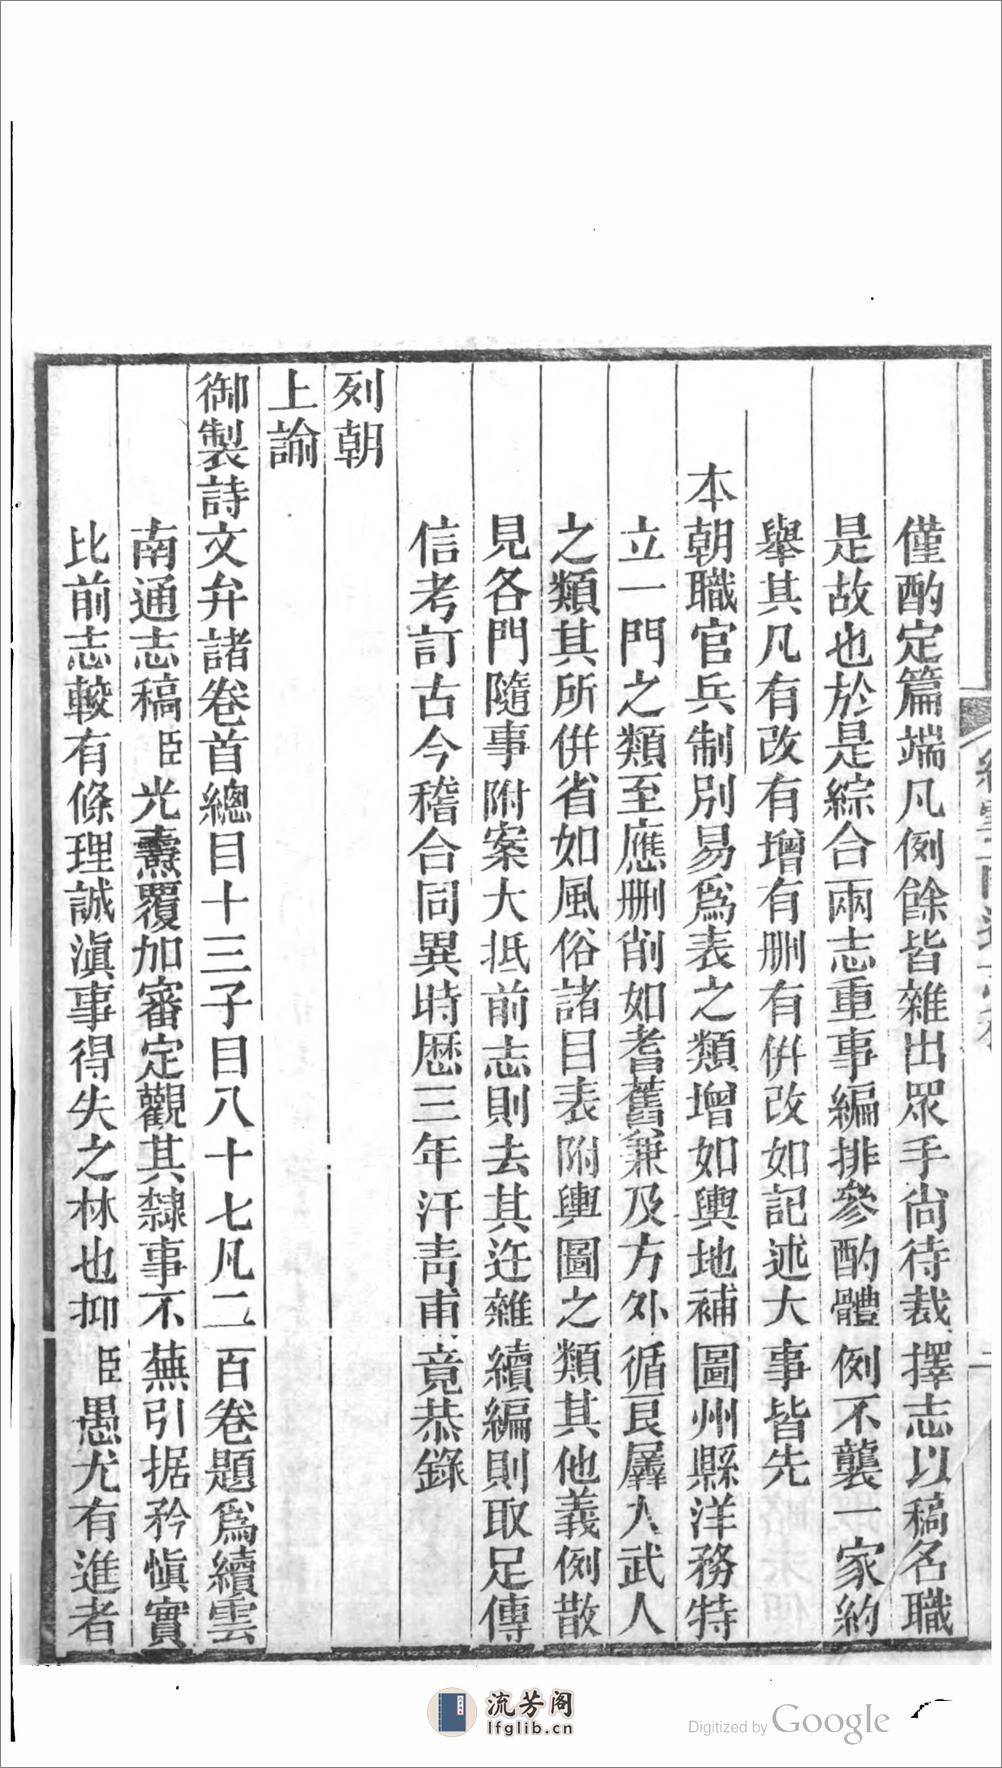 僅酌定篇端凡例餘皆雜出眾手尚待裁擇志以稿名職
是故也於是綜合兩志重事編排參酌體例不襲一家約
舉其凡有改有增有刪有併改如記述大事皆先
本朝職官兵制別易爲表之類增如輿地補圖州縣洋務特
立一門之類至應刪削如耆舊兼及方外循良羼入武人
之類其所併省如風俗諸目表附輿圖之類其他義例散
見各門隨事附案大抵前志則去其迕雜續編則取足傳
信考訂古今稽合同異時歷三年汗靑甫竟恭錄
列朝
上諭
御製詩文弁諸卷首總目十三子目八十七凡二百卷題爲續雲
南通志稿臣光燾覆加審定觀其隸事不蕪引据矜愼實
比前志較有條理誠滇事得失之林也抑臣愚尤有進者
流芳阁
lfglib.cn
Digitized by Google